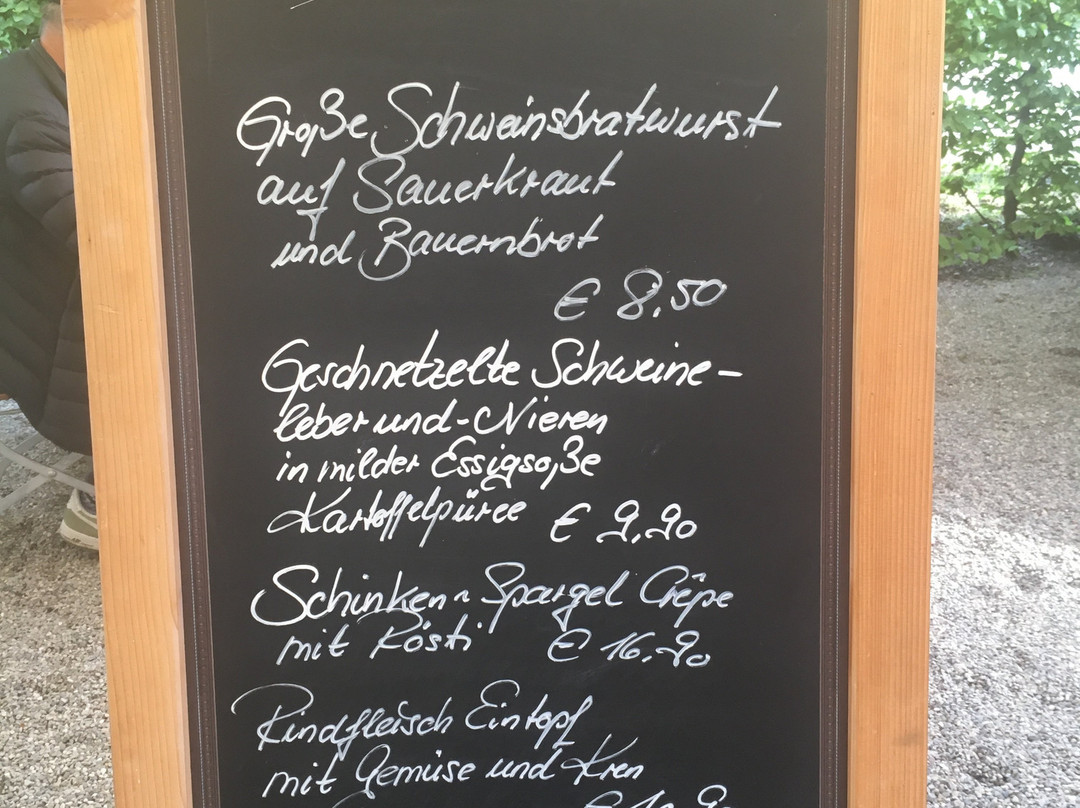 Große Schweinsbratwurst
auf Sauerkraut
und Bauernbrot
€ 8,50
Geschnetzelte Schweine-
leber und -Nieren
in milder Essigsoße
Kartoffelpüree € 9,90
Schinken-Spargel Crêpe
mit Rösti € 16,90
Rindfleisch Eintopf
mit Gemüse und Kren